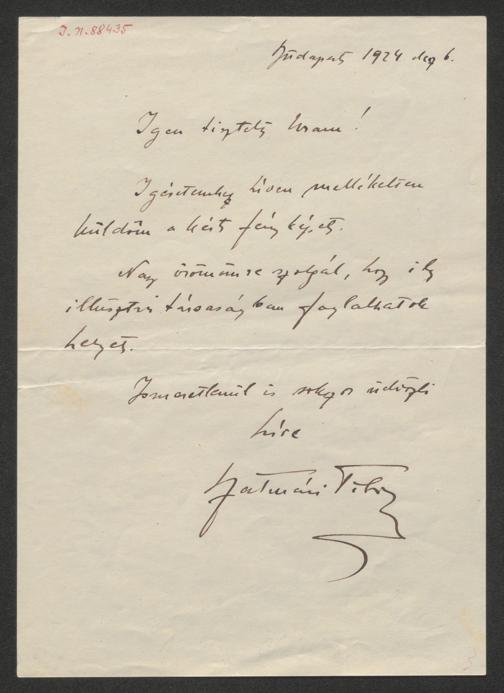 I.N.88435
Budapest, 1924 dec 6.
Igen tisztelt Uram!
Igéretemhez híven mellékelten
küldöm a kért fényképet.
Nagy örömömre szolgál, hogy ily
illusztris társaságban foglalhatok
helyet.
Ismeretlenül is sokszor üdvözli
híve
Szatmári Tibor